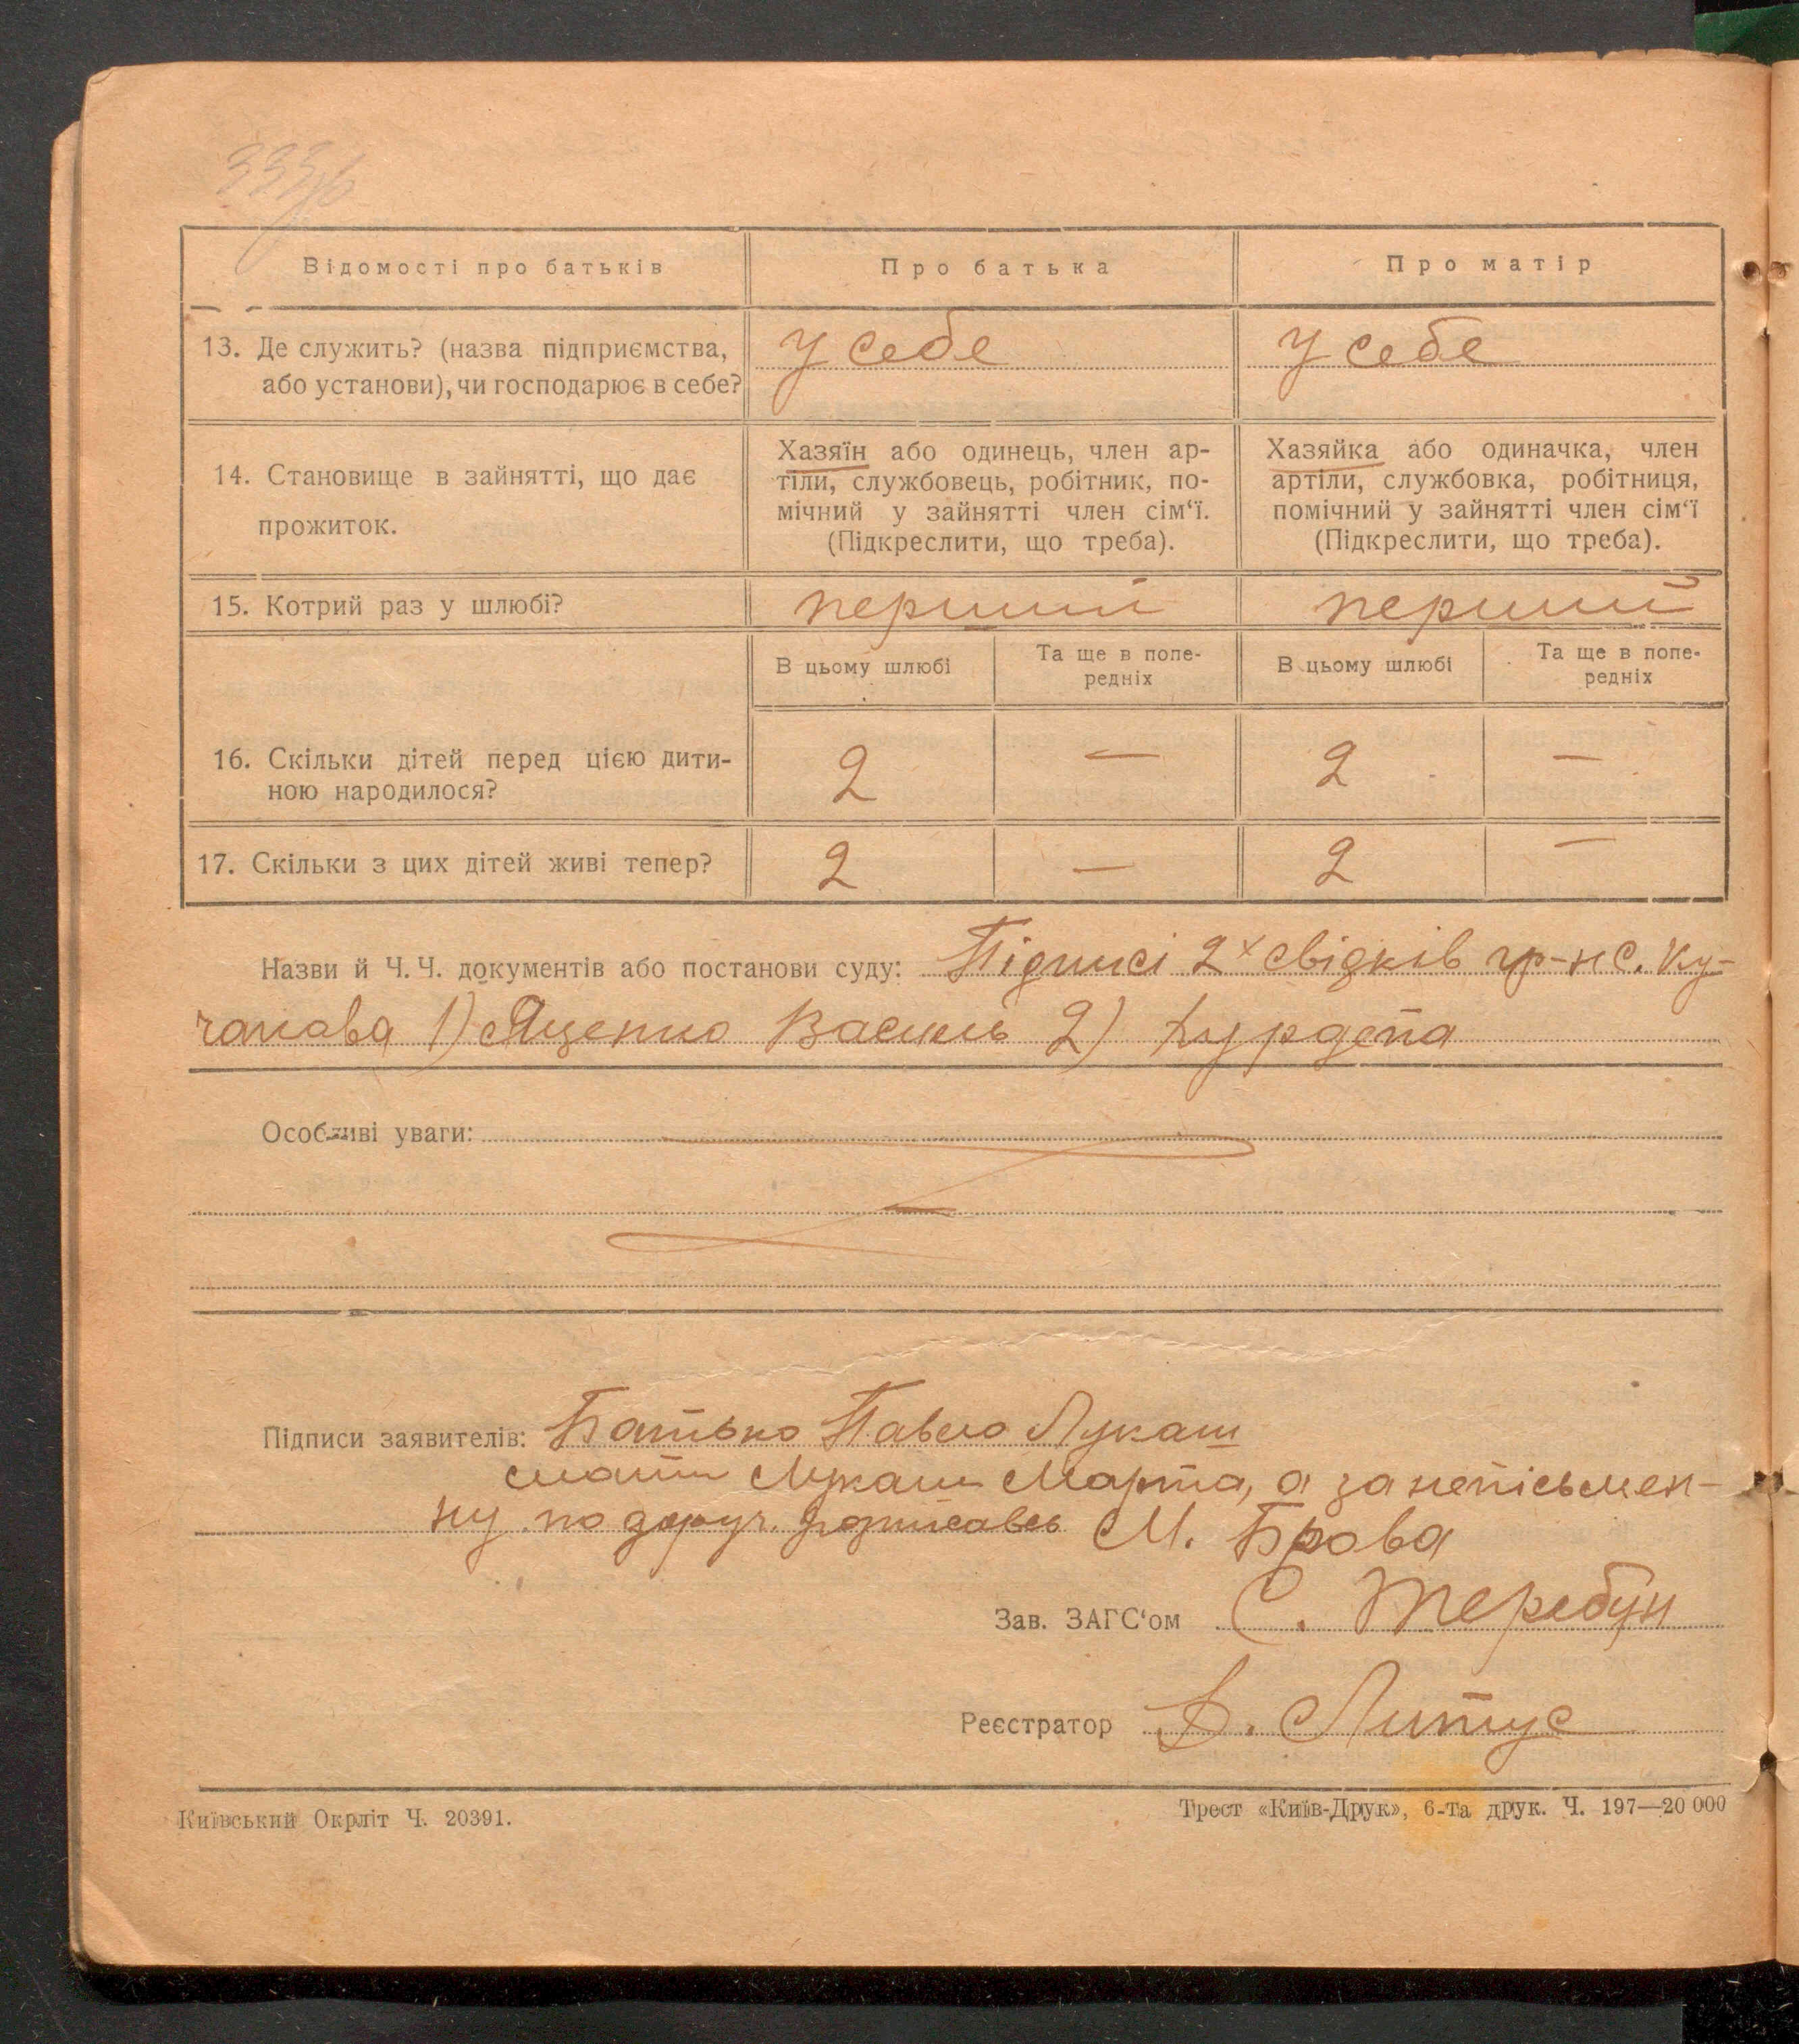 Відомості про батьків
Про батька
Про матір
13. Де служить? (назва підприємства,
або установи), чи господарює в себе?
У себе
У себе
14. Становище в зайнятті, що дає
прожиток.
Хазяїн або одинець, член ар-
тіли, службовець, робітник, по-
мічний у зайнятті член сім‘ї.
(Підкреслити, що треба).
Хазяйка або одиначка, член
артіли, службовка, робітниця,
помічний у зайнятті член сім‘ї
(Підкреслити, що треба).
15. Котрий раз у шлюбі?
перший
перший
В цьому шлюбі
Та ще в попе-
редніх
В цьому шлюбі
Та ще в попе-
редніх
16. Скільки дітей перед цією дити-
ною народилося?
2
—
2
—
17. Скільки з цих дітей живі тепер?
2
—
2
—
Назви й Ч. Ч. документів або постанови суду: Підписі 2х свідків гр-н с. Ку-
1) Яценко Василь 2)
Особливі уваги:
Підписи заявителів: Батько Павло Лукаш
мати Лукаш Марта, а за непісьмен-
ну по доруч. М. Брова
Зав. ЗАГС‘ом С. Теребун
Реєстратор Литус
Київський Окрліт Ч. 20391.
Трест «Київ-Друк», 6-та друк. Ч. 197—20 000